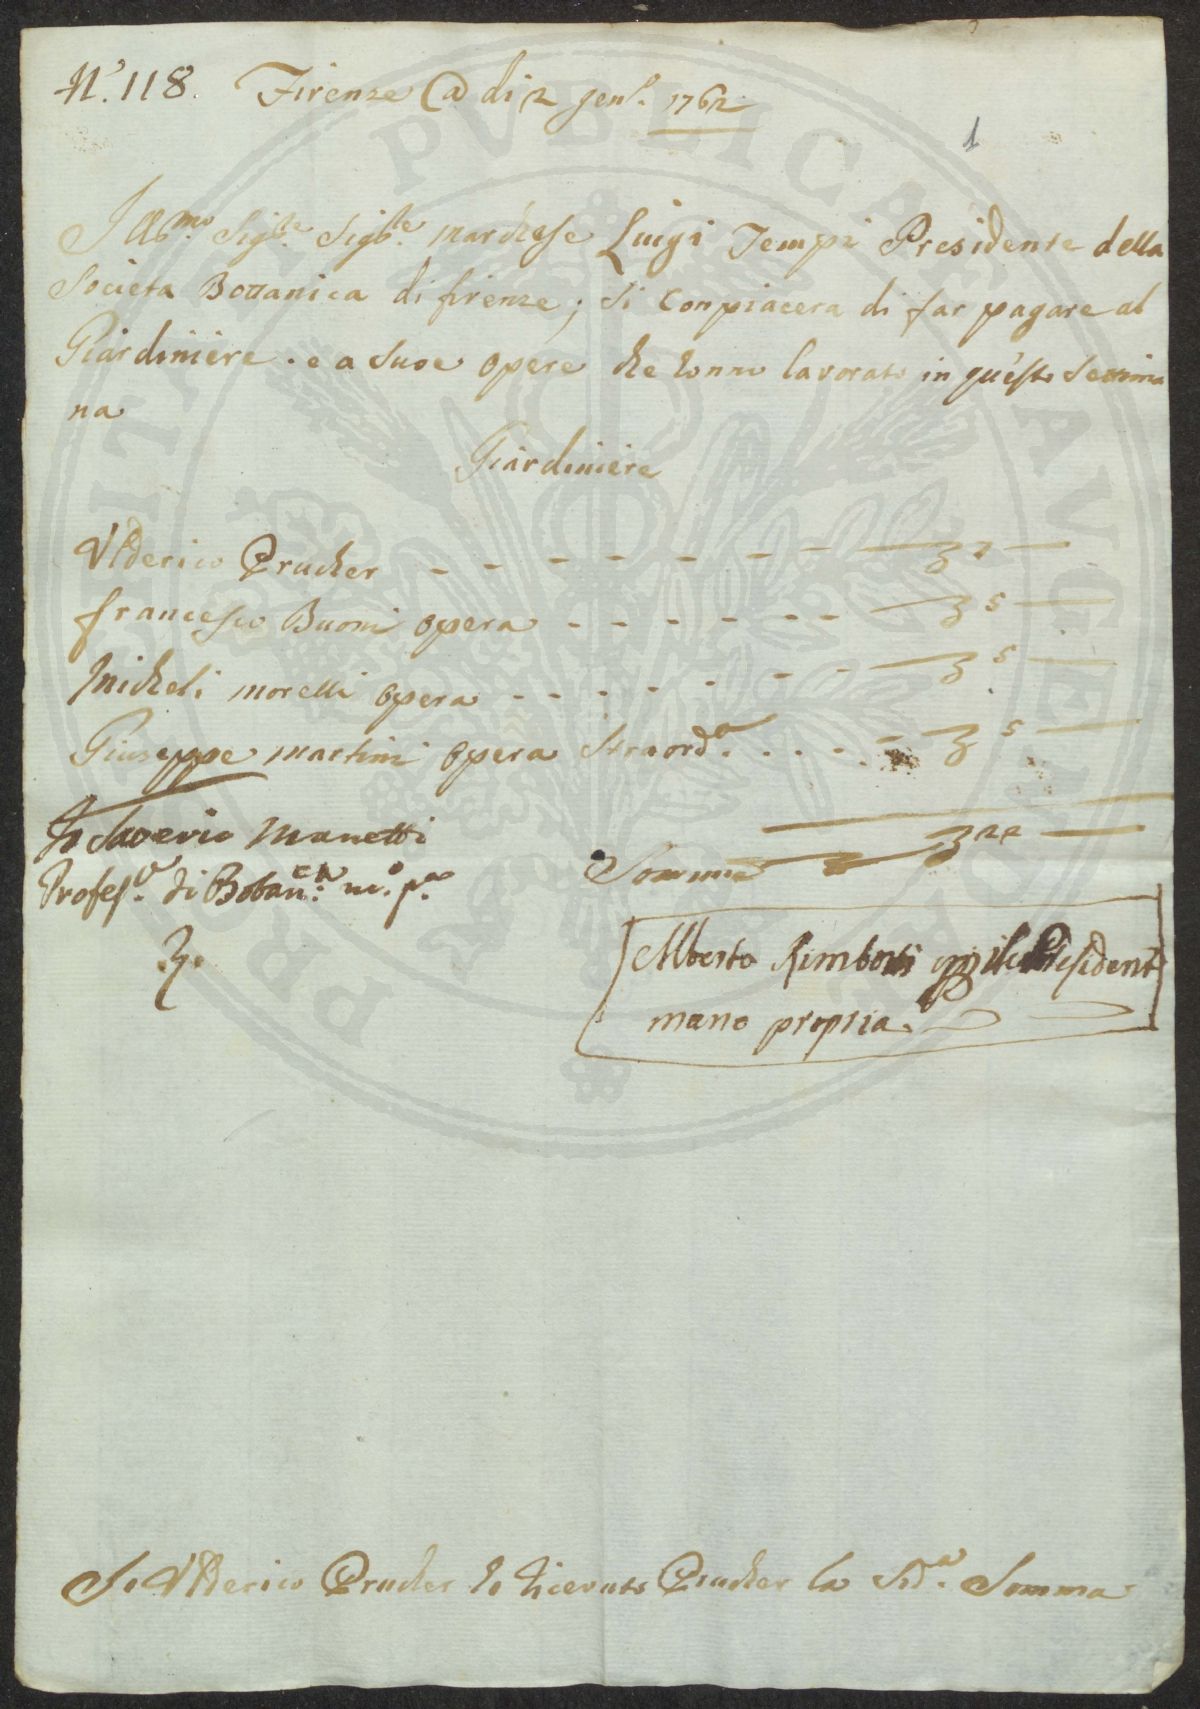 N.° 118. Firenze @ di 2 gen.° 1762
1
Ill.mo Sig.re Sig.re marchese Luigi Tempi Presidente della
Società Bottanica di firenze; si conpiacera di far pagare al
Giardiniere . e a sue opere che honno lavorato in questa settima
na
Giardiniere
Ulderico Prucher - - - - - - - 7 —
francesco Buoni opera - - - - - - 5 —
Micheli morelli opera - - - - - - 5 —
Giuseppe martini opera straord.a . . . . - 5 —
Io Saverio Manetti
Profes.e di Botan.ca m.o p.a
Somma 22 —
Alberto Rimbotti President
mano propria.
Io Ulderico Prucher ho ricevuto Prucher la Sud.a Somma
PVBLICAE AVGENDAE PROSPERITATIS